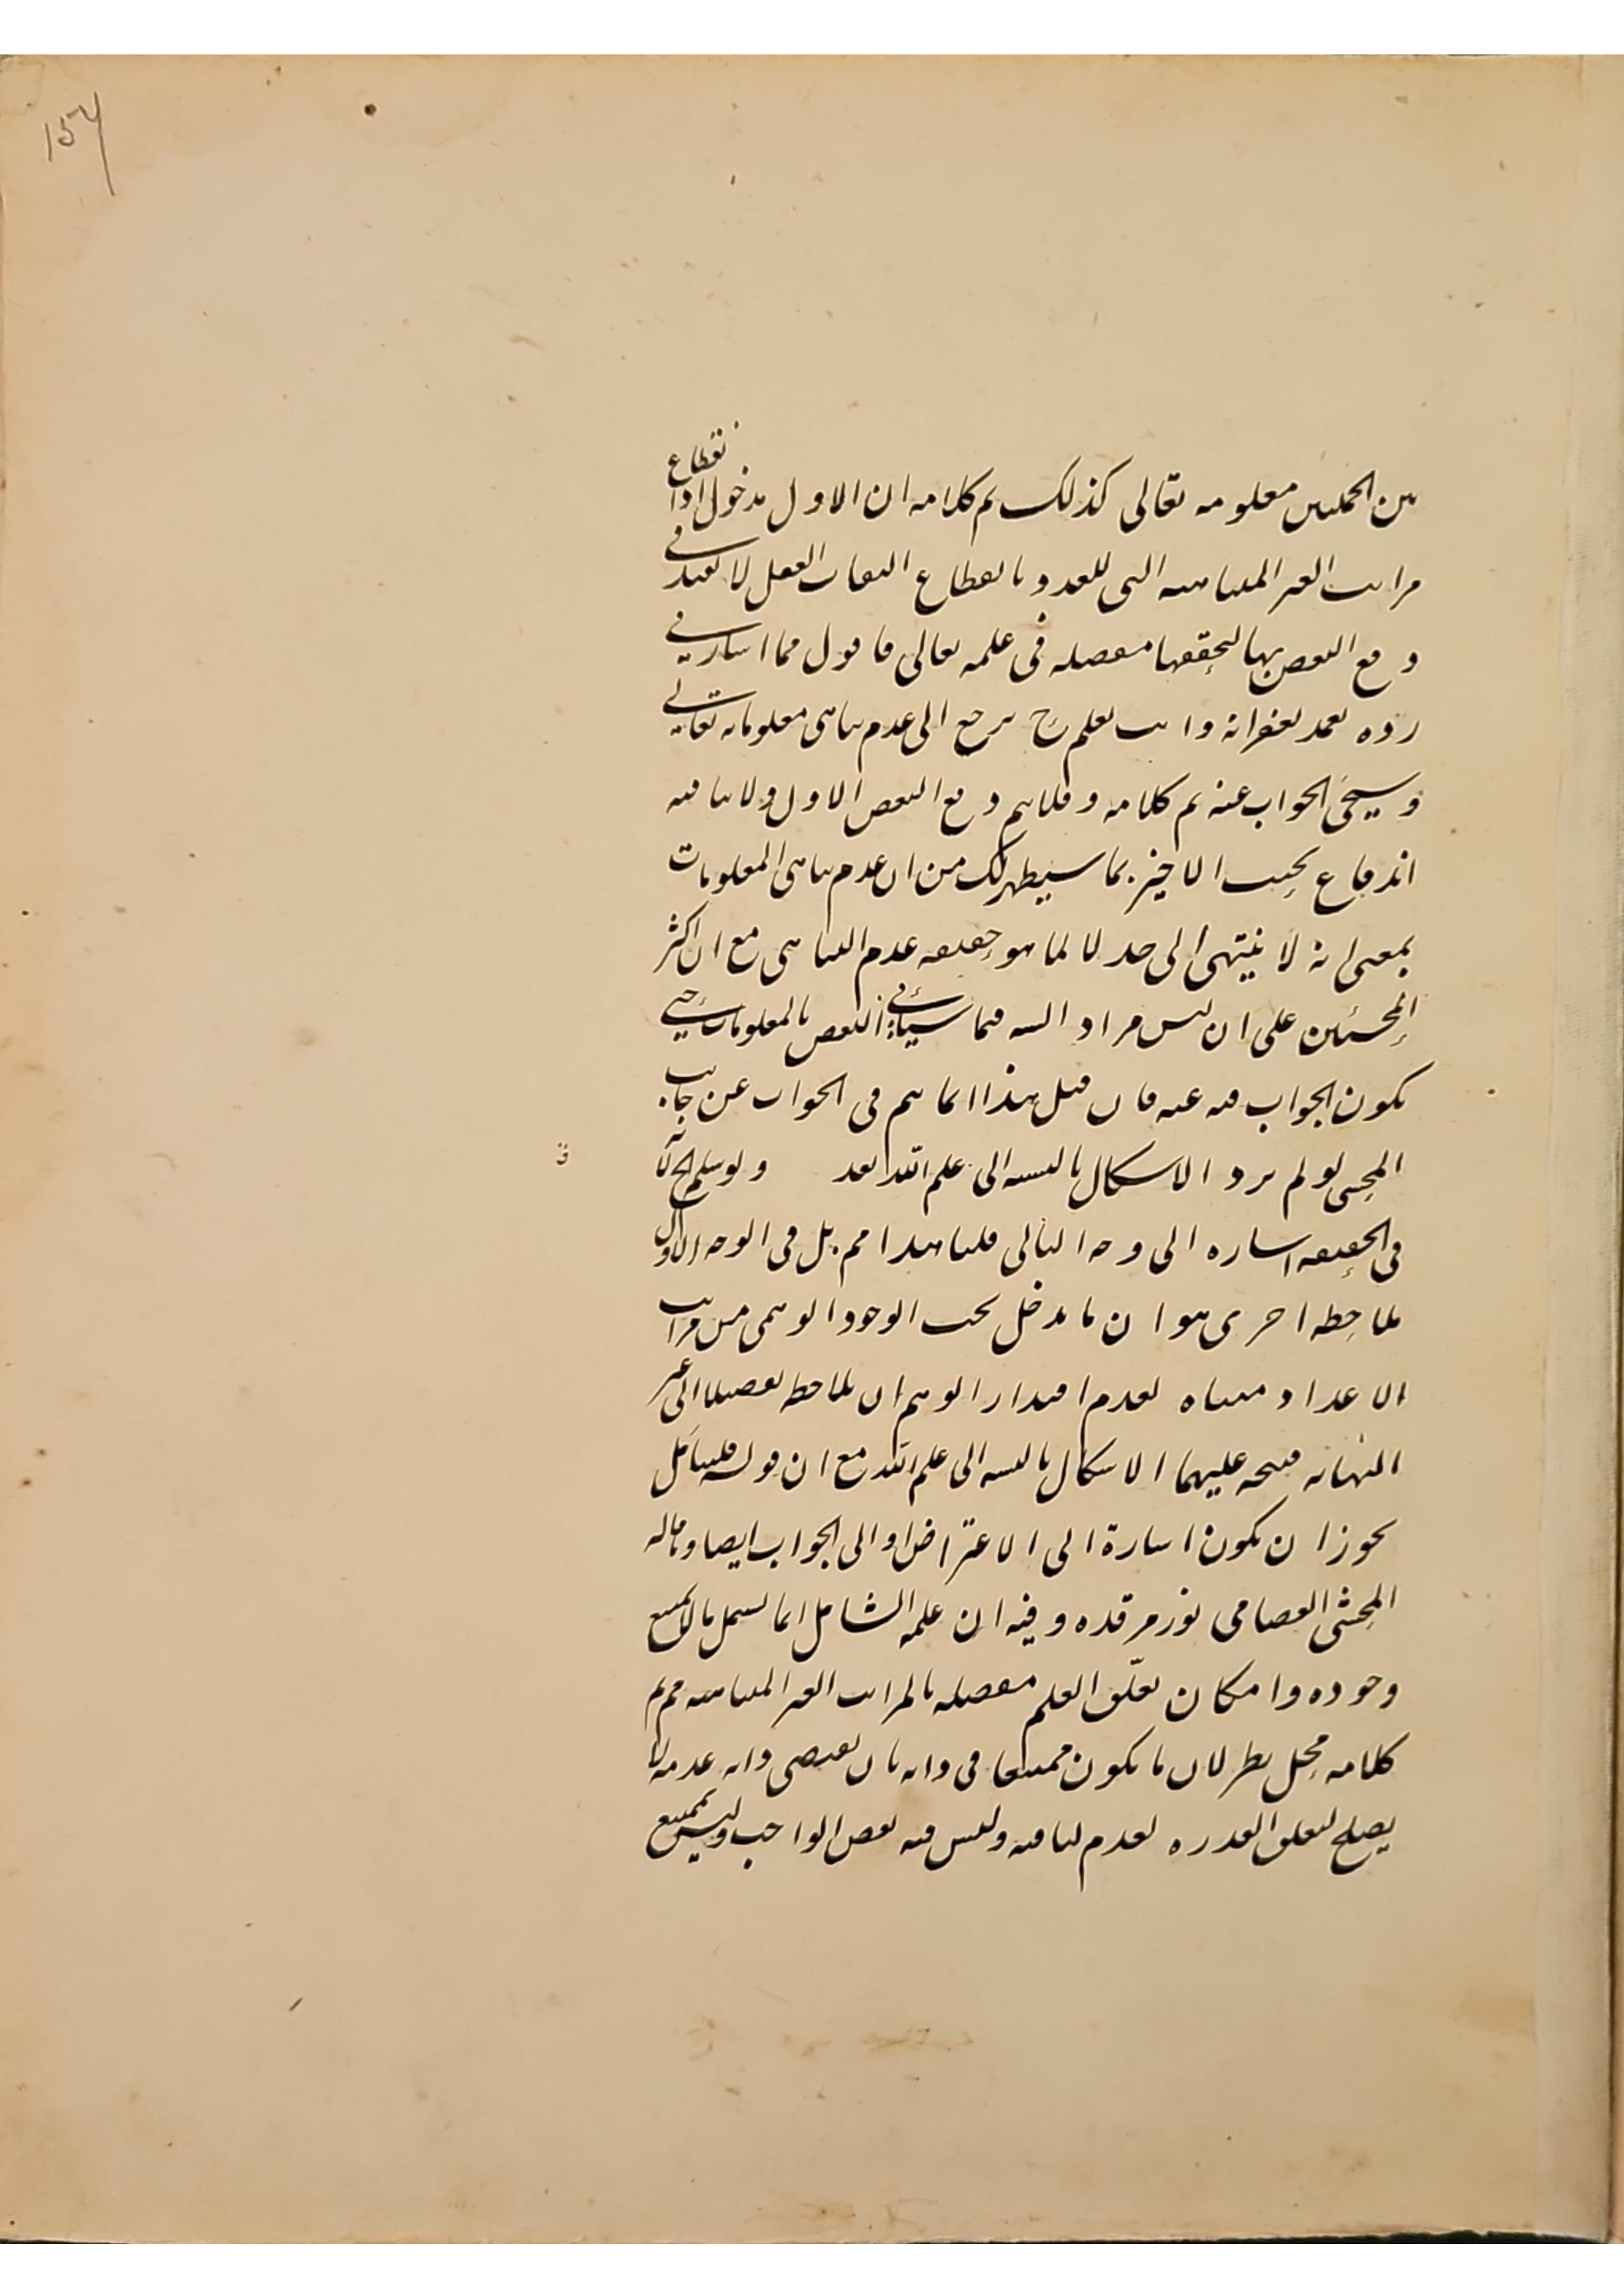 154
من الجملتين معلومه تعالى كذلك تم كلامه ان الاول مدخول اذا نقطاع
مراتب الغير المتناهيه التى للعدد بانقطاع التفات العقل لا يفيد فى
دفع النقض بها لتحققها مفصله فى علمه تعالى فاقول مما اشار فى
رده تغمد بغفرانه وانت تعلم ح يرجع الى عدم تناهى معلوماته تعالى
وسيجئ الجواب عنه تم كلامه وقلا يتم دفع النقض الاول ولا ينافيه
اندفاع بحيث الاخير بما سيظهر لك من ان عدم تناهى المعلومات
بمعنى انه لا ينتهى الى حد لا لما هو حقيقه عدم التناهى مع ان اكثر
المحشين على ان ليس مراد السيد فيما سيأتى النقض بالمعلومات حتى
يكون الجواب فيه عنه فان قيل هذا انما يتم فى الجواب عن جانب
المحشى لو لم يرد الاشكال بالنسبه الى علم الله بعد ولو سلم
فى الحقيقه اشاره الى وجه التالى قلنا هذا مم بل فى الوجه الاول
ملاحظه اخرى هو ان ما يدخل تحت الوجود الوهمى من مراتب
الاعداد متناه لعدم اقتدار الوهم ان يلاحظه تفصيلا الى غير
النهايه فيتجه عليهما الاشكال بالنسبه الى علم الله مع ان قوله فليتأمل
يجوز ان يكون اشارة الى الاعتراض او الى الجواب ايضا وما قاله
المحشى العصامى نور مرقده وفيه ان علمه الشامل انما يشمل ما لا يمتنع
وجوده وامكان تعلق العلم مفصله بالمراتب الغير المتناهيه مم تم
كلامه محل نظر لان ما يكون ممتنعا فى ذاته بان يقتضى ذاته عدمه لا
يصلح لتعلق القدره لعدم لياقته وليس فيه نقص الواجب وليس بممتنع